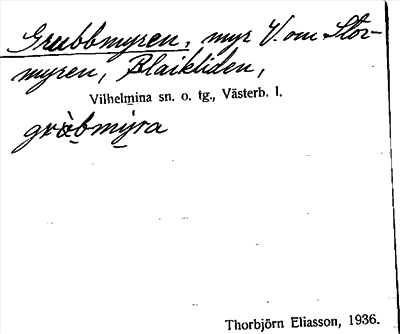 Grubbmyren, myr V. om Stor-
myren, Blaikliden,
Vilhelmina sn. o. tg., Västerb. l.
gràbmýra
Thorbjörn Eliasson, 1936.